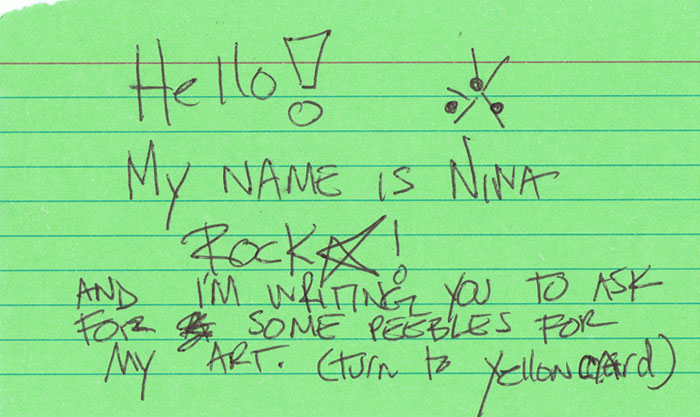 Hello!
My NAME is NINA
ROCK☆!
AND I'M WRITING YOU TO ASK
FOR SOME PEEBLES FOR
MY ART. (turn to yellow card)